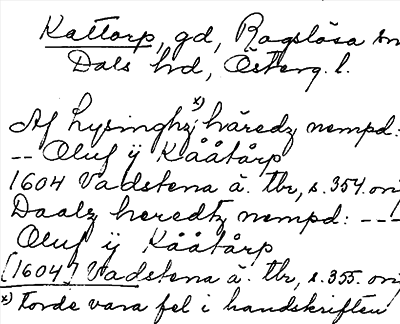 Kattorp, gd, Rogslösa sn
Dals hd, Österg. l.
Af Lysinghz x) häredz nempd:
-- Oluf ÿ Kååtårp
1604 Vadstena ä. tbr, s. 354. ori
Daalz heredtz nempd: ---
Oluf ÿ Kååtårp
[1604] Vadstena ä. tbr, s. 355. ori
x) Torde vara fel i handskriften